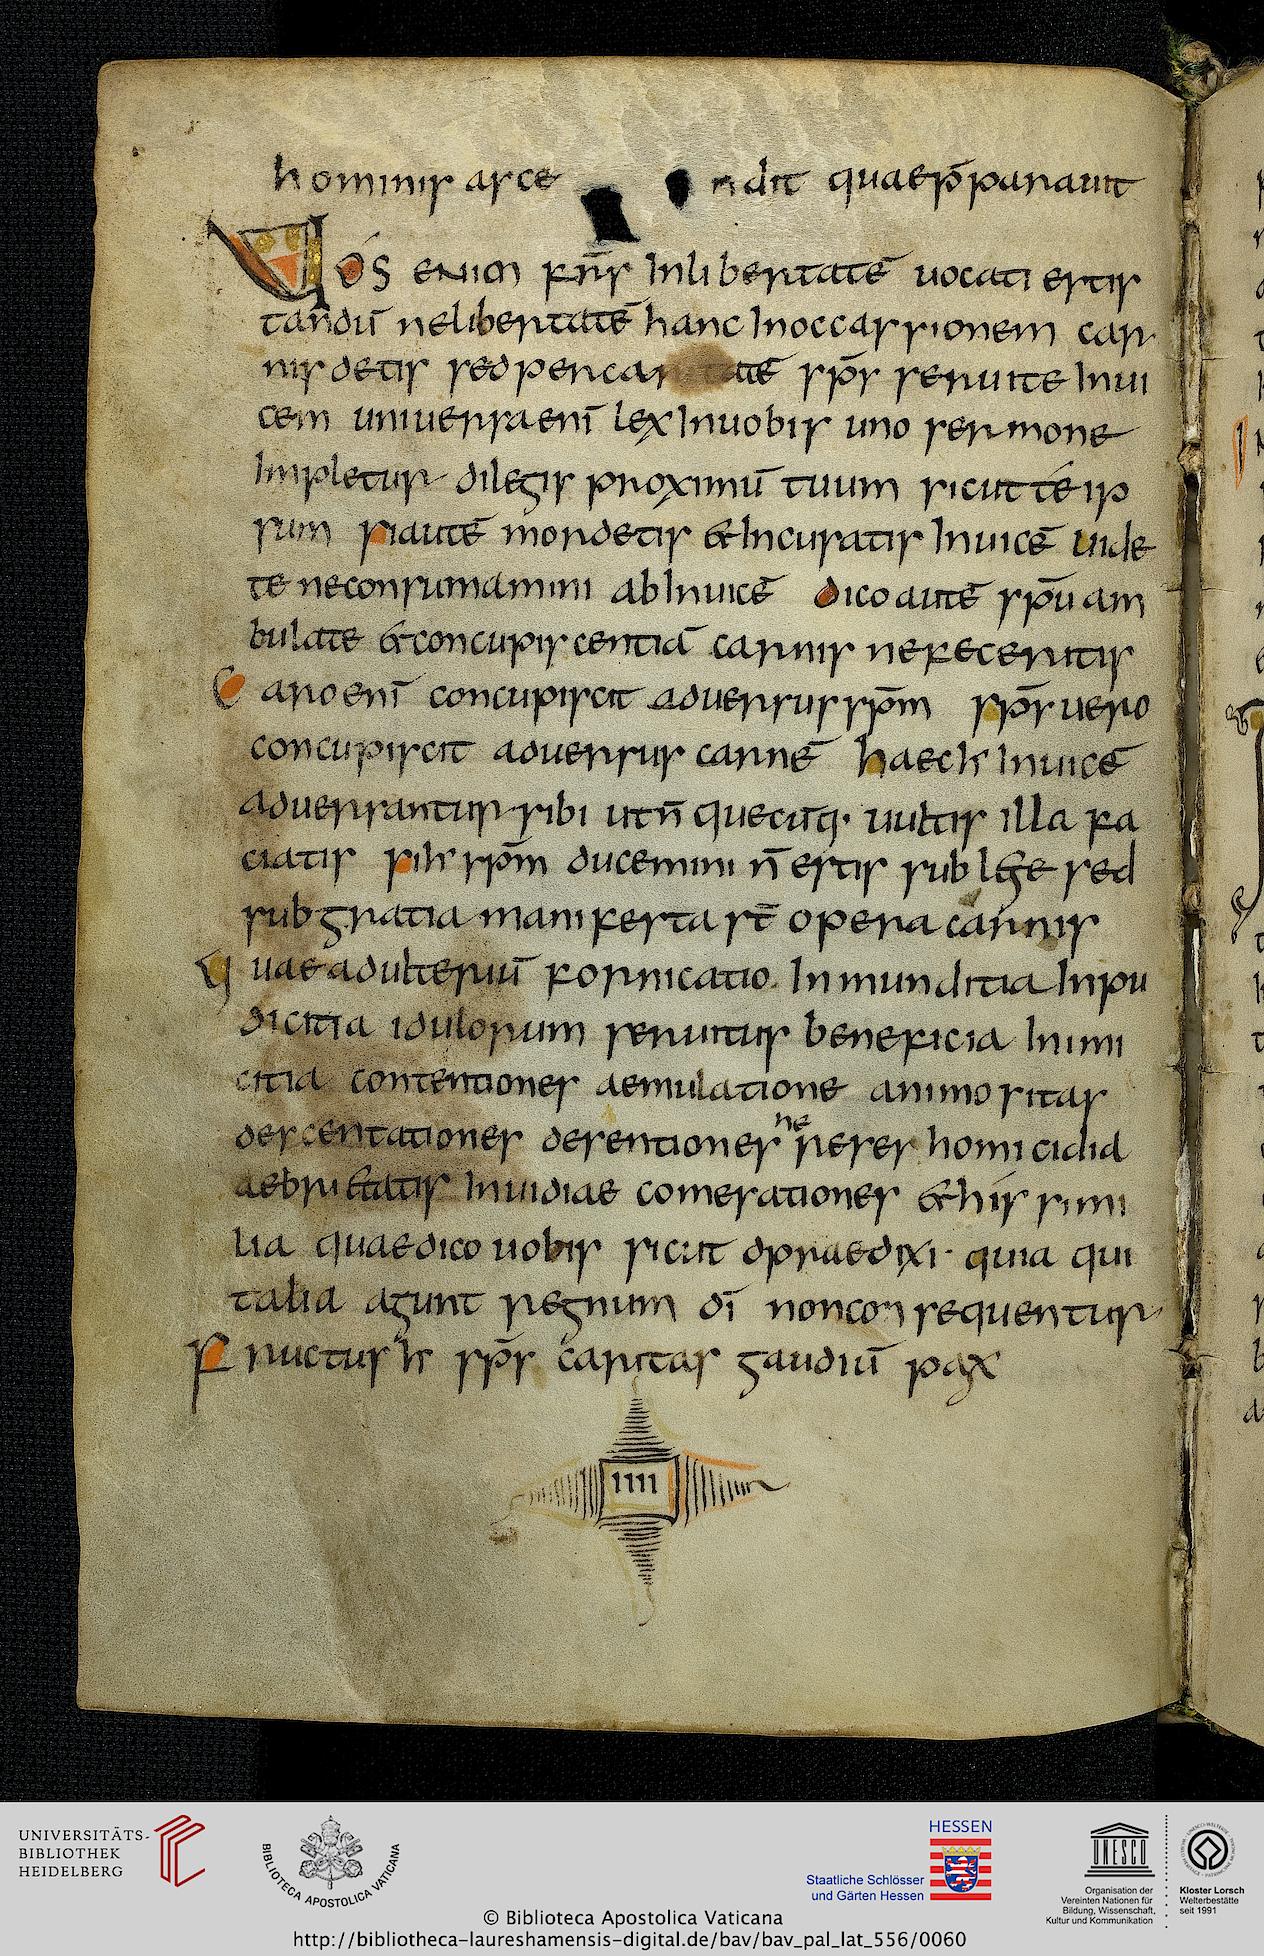 hominis asce ndit quaep̄paravit
Vos enim frs̄ in libertatē vocati estis
tandū ne libertatē hanc in occassionem car
nis detis sed per caritatē sp̄s servite invi
cem universa enī lex in vobis uno sermone
impletur dileges proximū tuum sicut té ip
sum si autē mordetis & incusatis invicē vide
te ne consumamini ab invicē dico autē sp̄u am
bulate & concupiscentiā carnis ne feceritis
Caro enī concupiscit adversus sp̄m sp̄s vero
concupiscit adversus carnē haec ħ invicē
adversantur sibi ut n̄ quecūq· vultis illa fa
ciatis si ħ sp̄m ducemini n̄ estis sub lege sed
sub gratia manifesta st̄ opera carnis
quae adulteriū fornicatio inmunditia inpu
dicitia idulorum servitus beneficia inimi
citia contentiones aemulatione animositas
descentationes desentiones hereses homicidia
aebrietatis invidiae comesationes & hís simi
lia quae dico vobis sicut dpraedixi· quia qui
talia agunt regnum dī non consequentur
Fructus ħ sp̄s caritas gaudiū pax
IIII
UNIVERSITÄTS-
BIBLIOTHEK
HEIDELBERG
BIBLIOTECA APOSTOLICA VATICANA
HESSEN
Staatliche Schlösser
und Gärten Hessen
UNESCO
Organisation der
Vereinten Nationen für
Bildung, Wissenschaft,
Kultur und Kommunikation
Kloster Lorsch
Welterbestätte
seit 1991
© Biblioteca Apostolica Vaticana
http://bibliotheca-laureshamensis-digital.de/bav/bav_pal_lat_556/0060